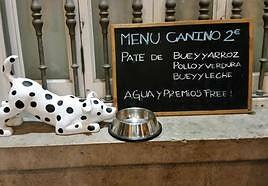 MENU CANINO 2€
PATE DE BUEY Y ARROZ
POLLO Y VERDURA
BUEY Y LECHE
AGUA Y PREMIOS FREE!